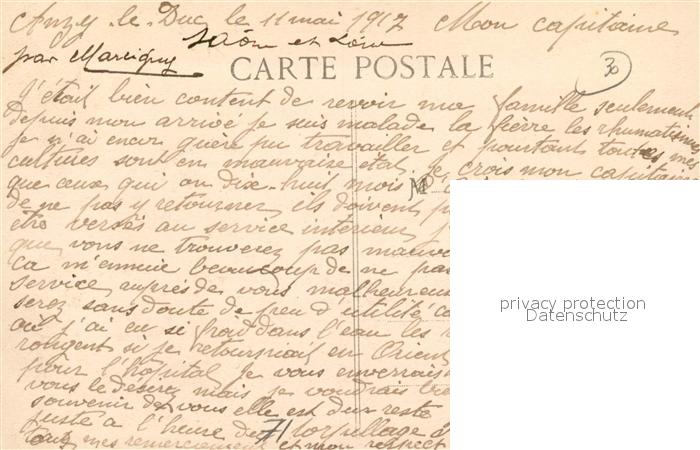 Anzy-le-Duc le 11 mai 1917 Mon capitaine
par Marcigny Saône et Loire
CARTE POSTALE
30
J'étais bien content de revoir ma famille seulement
depuis mon arrivé je suis malade la fièvre les rhumatismes
je n'ai encor guère pu travailler et pourtant toutes mes
cultures sont en mauvaise état je crois mon capitaine
que ceux qui on dix-huit mois de
de ne pas y retourner ils doivent
être versés au service intérieur j
que vous ne trouverez pas mauva
Ca m'ennuie beaucoup de ne pas
service auprès de vous malheureus
serez sans doute de peu d'utilité
où j'ai eu si froid dans l'eau les
rongent si je retournait en Orien
pour l'hopital je vous enverrais
vous le désirez mais je voudrais
souvenir de vous elle est du reste
juste a l'heure du torpillage
tous mes remerciements et mon respect
privacy protection
Datenschutz